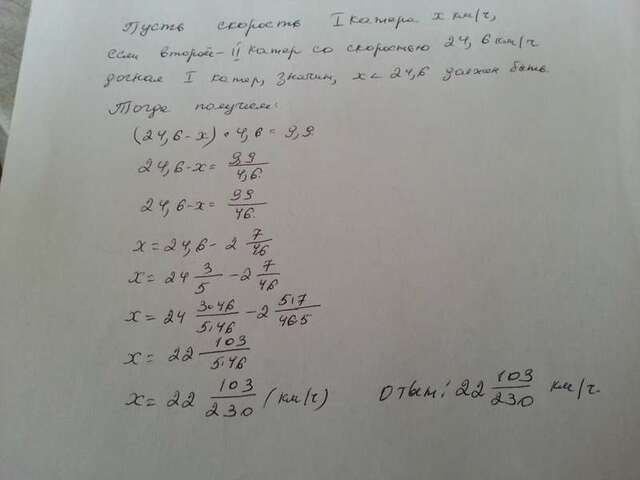 Пусть скорость I катера x км/ч,
если второй - II катер со скоростью 24,6 км/ч
догнал I катер, значит, x < 24,6 должен быть.
Тогда получаем:
(24,6 - x) • 4,6 = 9,9
24,6 - x = 9,9/4,6
24,6 - x = 99/46
x = 24,6 - 2 7/46
x = 24 3/5 - 2 7/46
x = 24 3·46/5·46 - 2 5·7/46·5
x = 22 103/5·46
x = 22 103/230 (км/ч) Ответ: 22 103/230 км/ч.